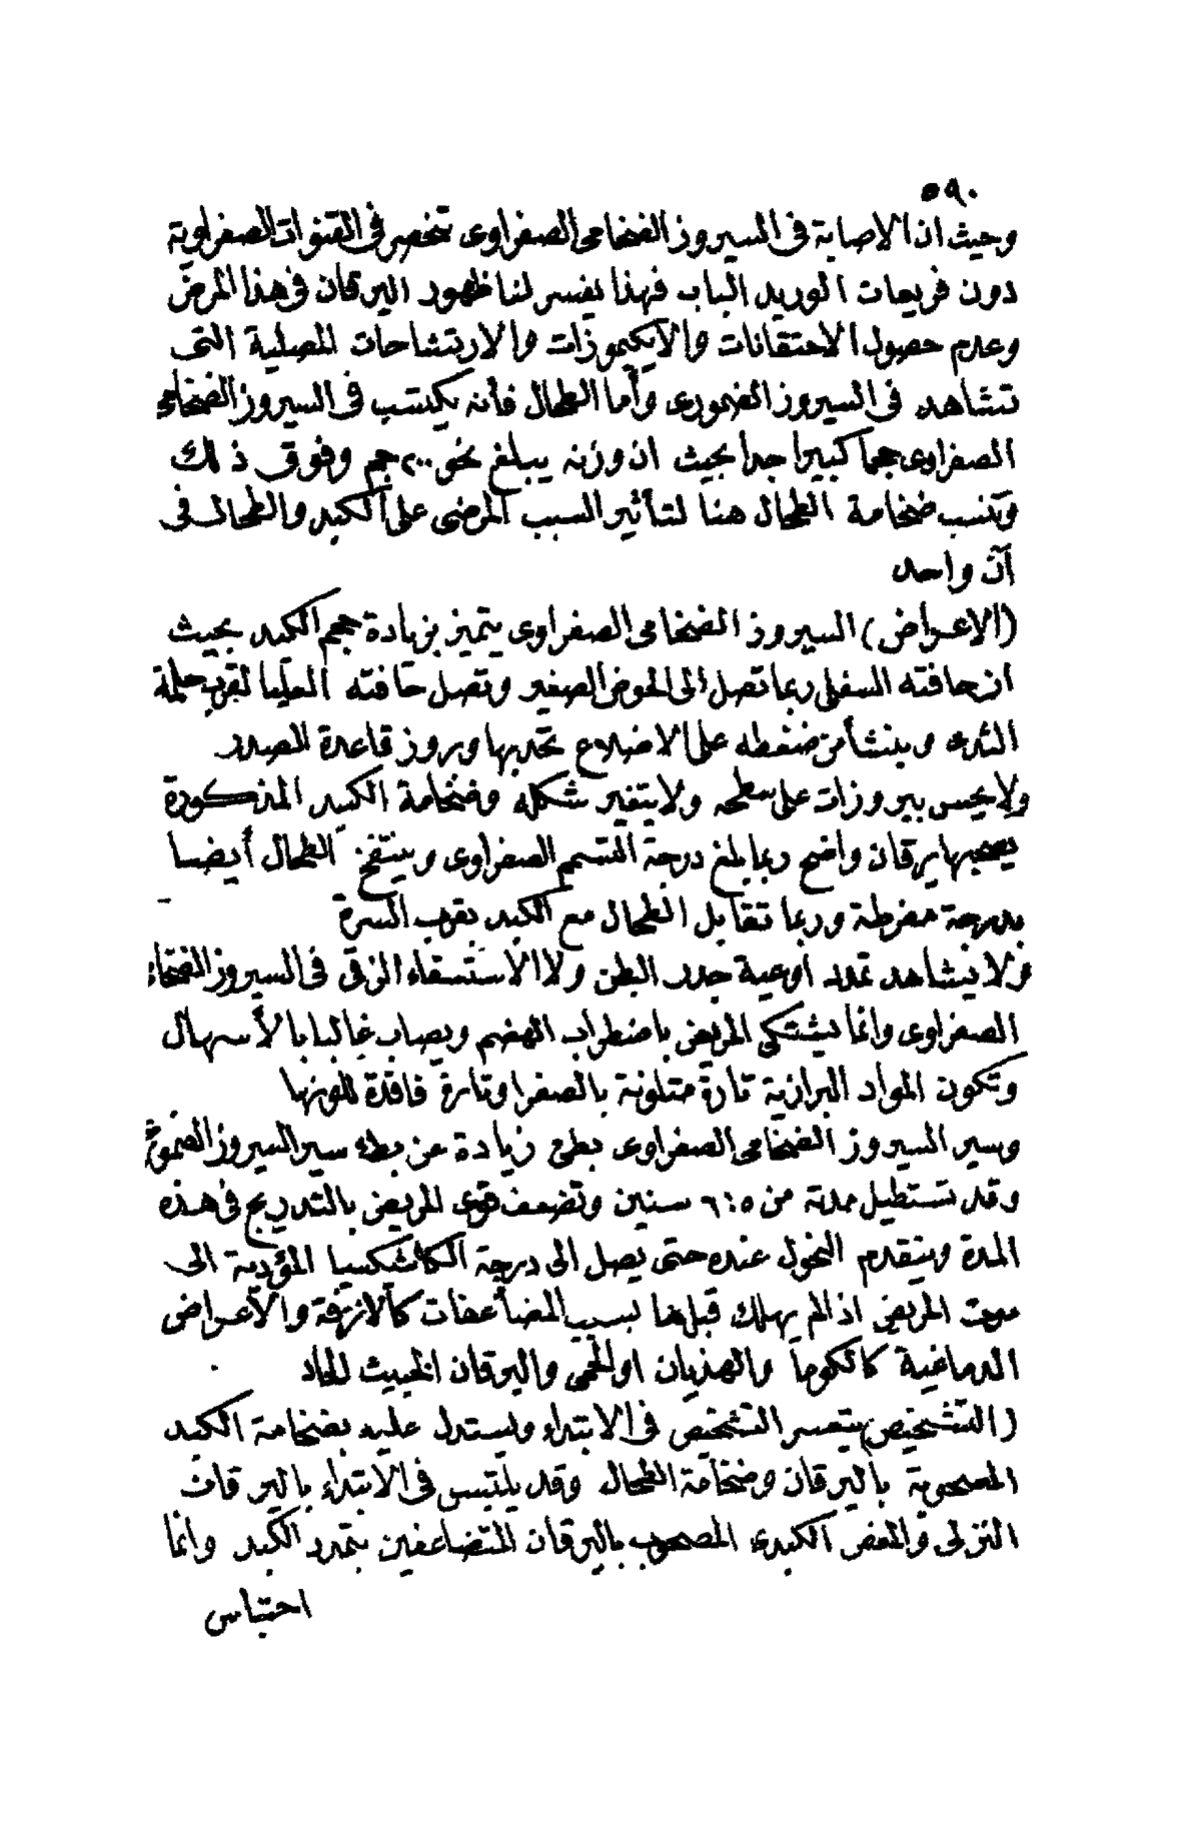 ٥٩٠
وحيث ان الاصابة فى السيروز الضخامى الصفراوى تنحصر فى القنوات الصفراوية
دون فريعات الوريد الباب فهذا يفسر لنا ظهور اليرقان فى هذا المرض
وعدم حصول الاحتقانات والايكيموزات والارتشاحات المصلية التى
تشاهد فى السيروز الضمورى وأما الطحال فانه يكتسب فى السيروز الضخامى
الصفراوى حجما كبيرا جدا بحيث ان وزنه يبلغ نحو ٢٠٠٠ جم وفوق ذلك
وتنسب ضخامة الطحال هنا لتأثير السبب المرضى على الكبد والطحال فى
آن واحد
(الاعراض) السيروز الضخامى الصفراوى يتميز بزيادة حجم الكبد بحيث
ان حافته السفلى ربما تصل الى الحوض الصغير وتصل حافته العليا لقرب حلمة
الثدى وينشأ من ضغطه على الاضلاع تحدبها وبروز قاعدة الصدر
ولا يحس ببروزات على سطحه ولا يتغير شكله وضخامة الكبد المذكورة
يصحبها يرقان واضح ربما يبلغ درجة التسمم الصفراوى وينتفخ الطحال أيضا
بدرجة مفرطة وربما تقابل الطحال مع الكبد بقرب السرة
ولا يشاهد تمدد أوعية جدر البطن ولا الاستسقاء الزقى فى السيروز الضخامى
الصفراوى وانما يشتكى المريض باضطراب الهضم ويصاب غالبا بالاسهال
وتكون المواد البرازية تارة متلونة بالصفرا وتارة فاقدة للونها
وسير السيروز الضخامى الصفراوى بطئ زيادة عن بطء سير السيروز الضمورى
وقد تستطيل مدته من ٥ : ٦ سنين وتضعف قوى المريض بالتدريج فى هذه
المدة ويتقدم النحول عنده حتى يصل الى درجة الكاشكسيا المؤدية الى
موت المريض اذا لم يهلك قبلها بسبب المضاعفات كالانزفة والاعراض
الدماغية كالكوما والهذيان او الحمى واليرقان الخبيث الحاد
(التشخيص) يتعسر التشخيص فى الابتداء ويستدل عليه بضخامة الكبد
المصحوبة باليرقان وضخامة الطحال وقد يلتبس فى الابتداء باليرقان
النزلى والمغص الكبدى المصحوب باليرقان المتضاعفين بتمدد الكبد وانما
احتباس